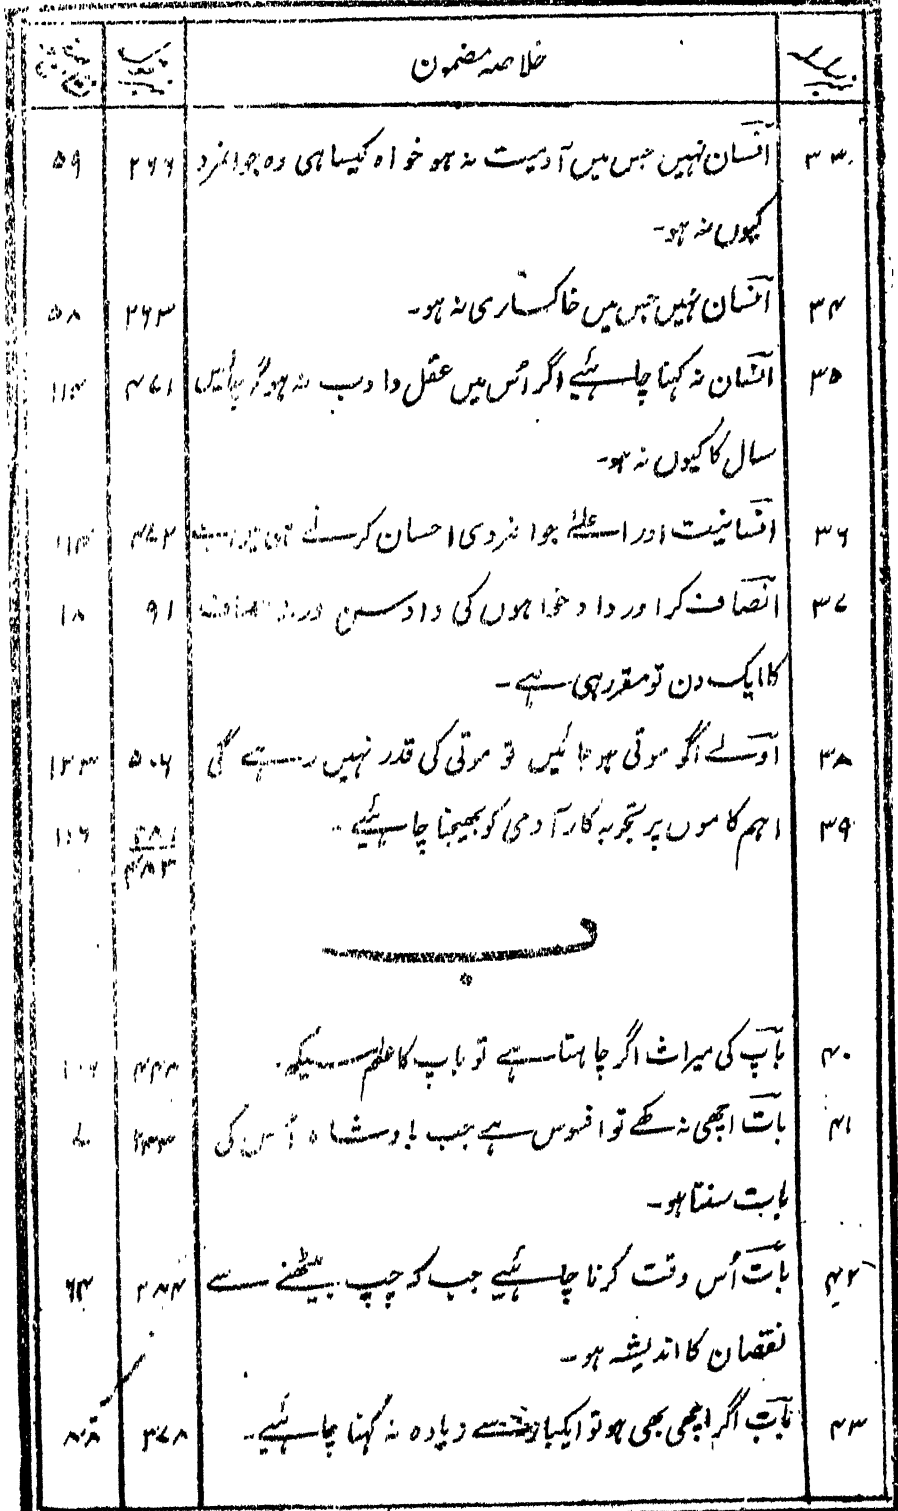 نمبر شمار خلاصہ مضمون نمبر نمبر صفحہ
۳۳ انسان نہیں جس میں آدمیت نہ ہو خواہ کیسا ہی وہ جوانمرد ۲۶۶ ۵۹
کیوں نہ ہو۔
۳۴ انسان نہیں جس میں خاکساری نہ ہو۔ ۲۶۳ ۵۸
۳۵ انسان نہ کہنا چاہئیے اگر اُس میں عقل و ادب نہ ہو گو چالیس ۴۷۱ ۱۱۴
سال کا کیوں نہ ہو۔
۳۶ انسانیت اور اعلےٰ جوانمردی احسان کرنے میں ہے ۴۷۲ ۱۱۴
۳۷ انصاف کر اور داد خواہوں کی داد سن ورنہ انصاف ۹۱ ۱۸
کا ایک دن تو مقرر ہی ہے۔
۳۸ اولے اگر موتی ہو جائیں تو موتی کی قدر نہیں رہے گی ۵۰۶ ۱۲۳
۳۹ اہم کاموں پر تجربہ کار آدمی کو بھیجنا چاہئیے۔ ۱۱۶
۴۸۳
ب
۴۰ باپ کی میراث اگر چاہتا ہے تو باپ کا علم سیکھ۔
۴۱ بات اچھی نہ کہے تو افسوس ہے جب بادشاہ اُس کی
بابت سنتا ہو۔
۴۲ بات اُس وقت کرنا چاہئیے جب کہ چپ بیٹھنے سے ۲۸۴ ۶۴
نقصان کا اندیشہ ہو۔
۴۳ بات اگر اچھی بھی ہو تو ایکبار سے زیادہ نہ کہنا چاہئیے۔ ۳۷۸